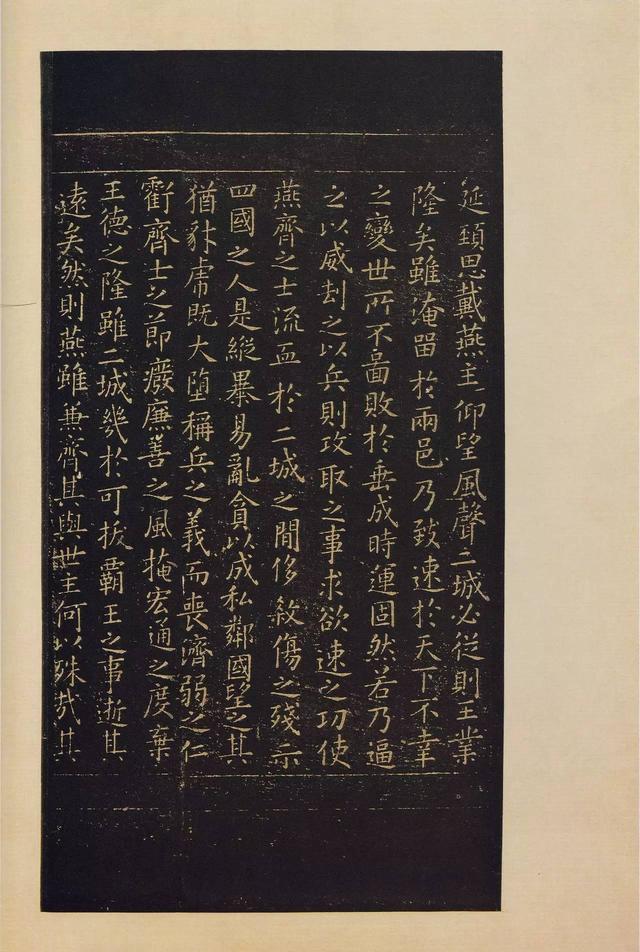 延頸思戴燕主仰望風聲二城必從則王業
隆矣雖淹留於兩邑乃致速於天下不幸
之變世所不啚敗於垂成時運固然若乃逼
之以威刧之以兵則攻取之事求欲速之功使
燕齊之士流血於二城之間侈殺傷之殘示
四國之人是縱暴易亂貪以成私鄰國望之其
猶豺虎既大墮稱兵之義而喪濟弱之仁
虧齊士之節癈廉善之風掩宏通之度棄
王德之隆雖二城幾於可拔霸王之事逝其
遠矣然則燕雖兼齊其與世主何以殊哉其